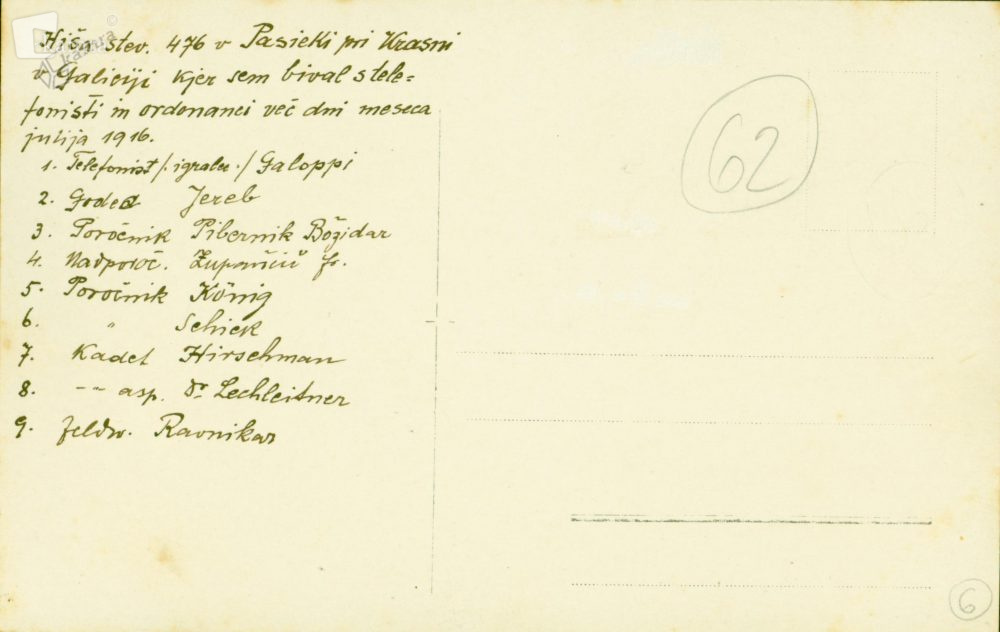 Hiša štev. 476 v Pasieki pri Krasni
v Galiciji kjer sem bival s tele=
fonisti in ordonanci več dni meseca
julija 1916.
1. Telefonist /: igralec :/ Galoppi
2. Godec Jereb
3. Poročnik Pibernik Božidar
4. Nadporoč. Zupančič fr.
5. Poročnik König
6. " Schick
7. Kadet Hirschman
8. -"- asp. Dr Lechleitner
9. feldw. Ravnikar
62
6
kamra